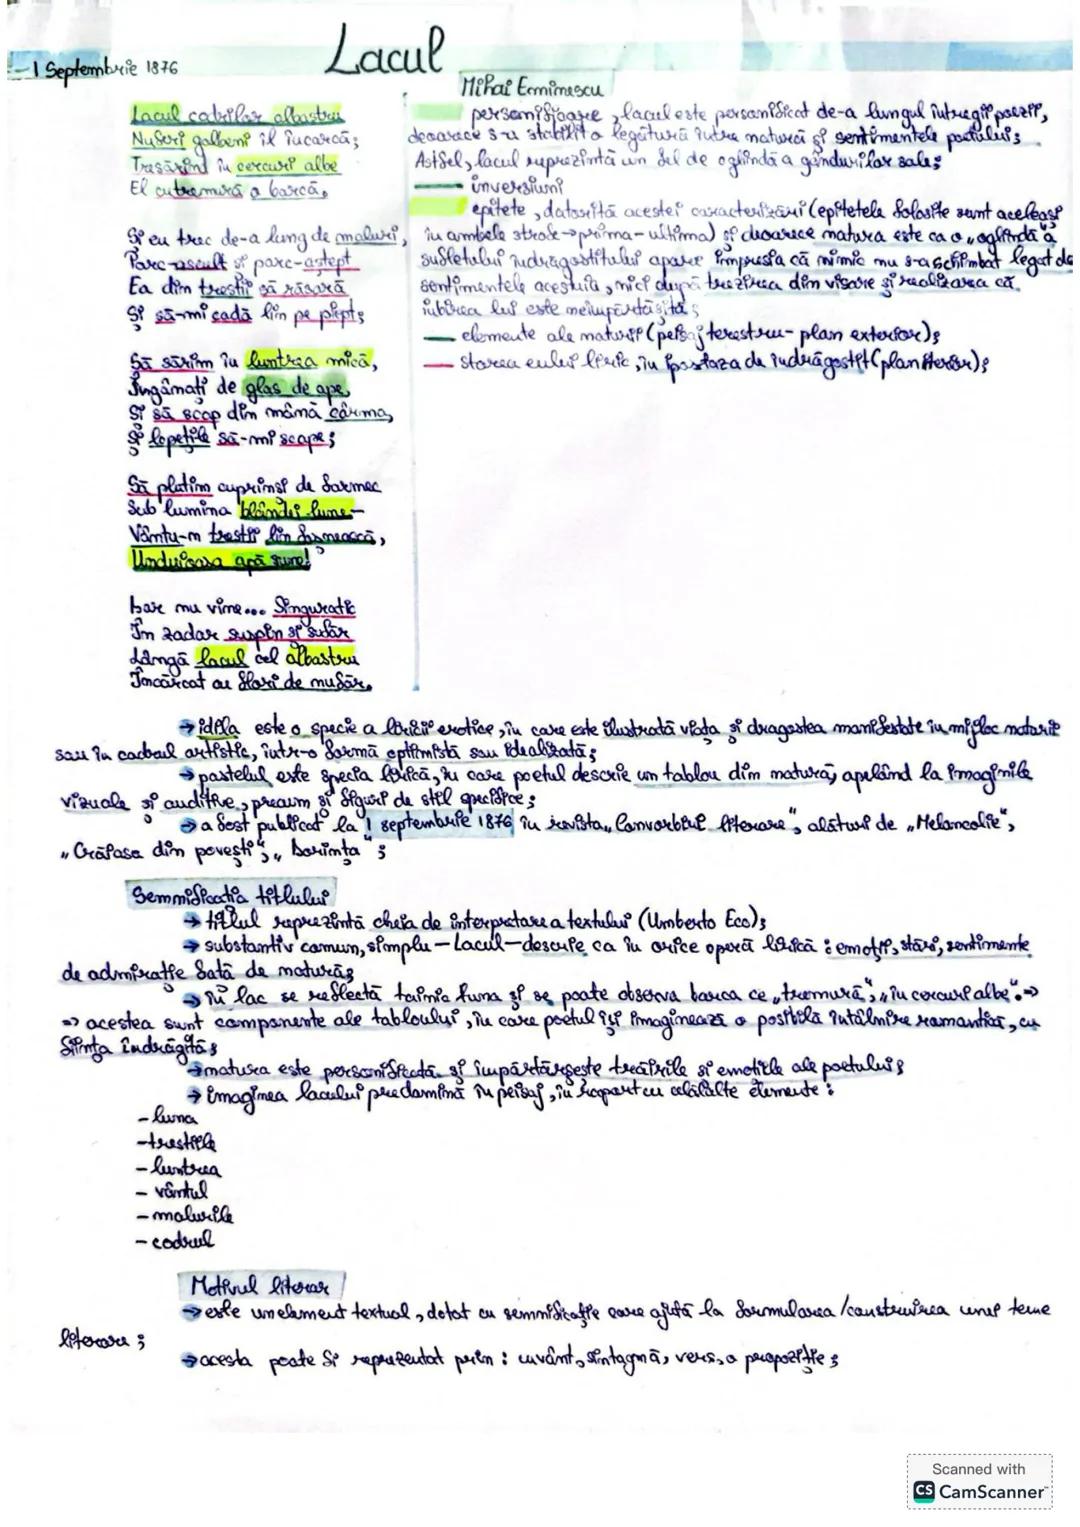 Lacul
1 Septembrie 1876
Mihai Eminescu
Lacul codrilor albastru
Nuferi galbeni îl încarcă;
Tresărind în cercuri albe
El cutremură o barcă.
Și eu trec de-a lung de maluri,
Parc-ascult și parc-aștept
Ea din trestii să răsară
Și să-mi cadă lin pe piept;
Să sărim în luntrea mică,
Îngânați de glas de ape,
Și să scap din mână cârma,
Și lopețile să-mi scape;
Să plutim cuprinși de farmec
Sub lumina blândei lune-
Vântu-n trestii lin foșnească,
Unduioasa apă sune!
Dar nu vine... Singuratic
În zadar suspin și sufăr
Lângă lacul cel albastru
Încărcat cu flori de nufăr.
personificare, lacul este personificat de-a lungul întregii poezii,
deoarece s-a stabilit o legătură între natură și sentimentele poetului;
Astfel, lacul reprezintă un fel de oglindă a gândurilor sale;
inversiuni
epitete, datorită acestei caracterizări (epitetele folosite sunt aceleași
în ambele strofe→prima-ultima) și deoarece natura este ca o „oglindă" a
sufletului îndrăgostitului apare impresia că nimic nu s-a schimbat legat de
sentimentele acestuia, nici după trezirea din visare și realizarea că
iubirea lui este neîmpărtășită;
elemente ale naturii (peisaj terestru- plan exterior);
starea eului liric, în ipostaza de îndrăgostit (plan interior);
→ idila este o specie a liricii erotice, în care este ilustrată viața și dragostea manifestate în mijloc naturii
sau în cadrul artistic, într-o formă optimistă sau idealizată;
→ pastelul este specia lirică, în care poetul descrie un tablou din natură, apelând la imaginile
vizuale și auditive, precum și figuri de stil specifice;
→ a fost publicat la 1 septembrie 1876 în revista „Convorbiri literare", alături de „Melancolie",
„Crăiasa din povești", „Dorința";
Semnificația titlului
→ titlul reprezintă cheia de interpretare a textului (Umberto Eco);
→ substantiv comun, simplu - Lacul - descrie ca în orice operă lirică: emoții, stări, sentimente
de admirație față de natură;
→ în lac se reflectă tainic luna și se poate observa barca ce „tremură", „în cercuri albe".=>
=> acestea sunt componente ale tabloului, în care poetul își imaginează o posibilă întâlnire romantică, cu
ființa îndrăgită;
→ natura este personificată și împărtărșește trăirile și emoțiile ale poetului;
→ imaginea lacului predomină în peisaj, în raport cu celălalte elemente:
- luna
- trestiile
- luntrea
- vântul
- malurile
- codrul
Motivul literar
→ este un element textual, dotat cu semnificație care ajută la formularea /construirea unei teme
literare;
→ acesta poate fi reprezentat prin: cuvânt, sintagmă, vers, o propoziție;
Scanned with
CS CamScanner